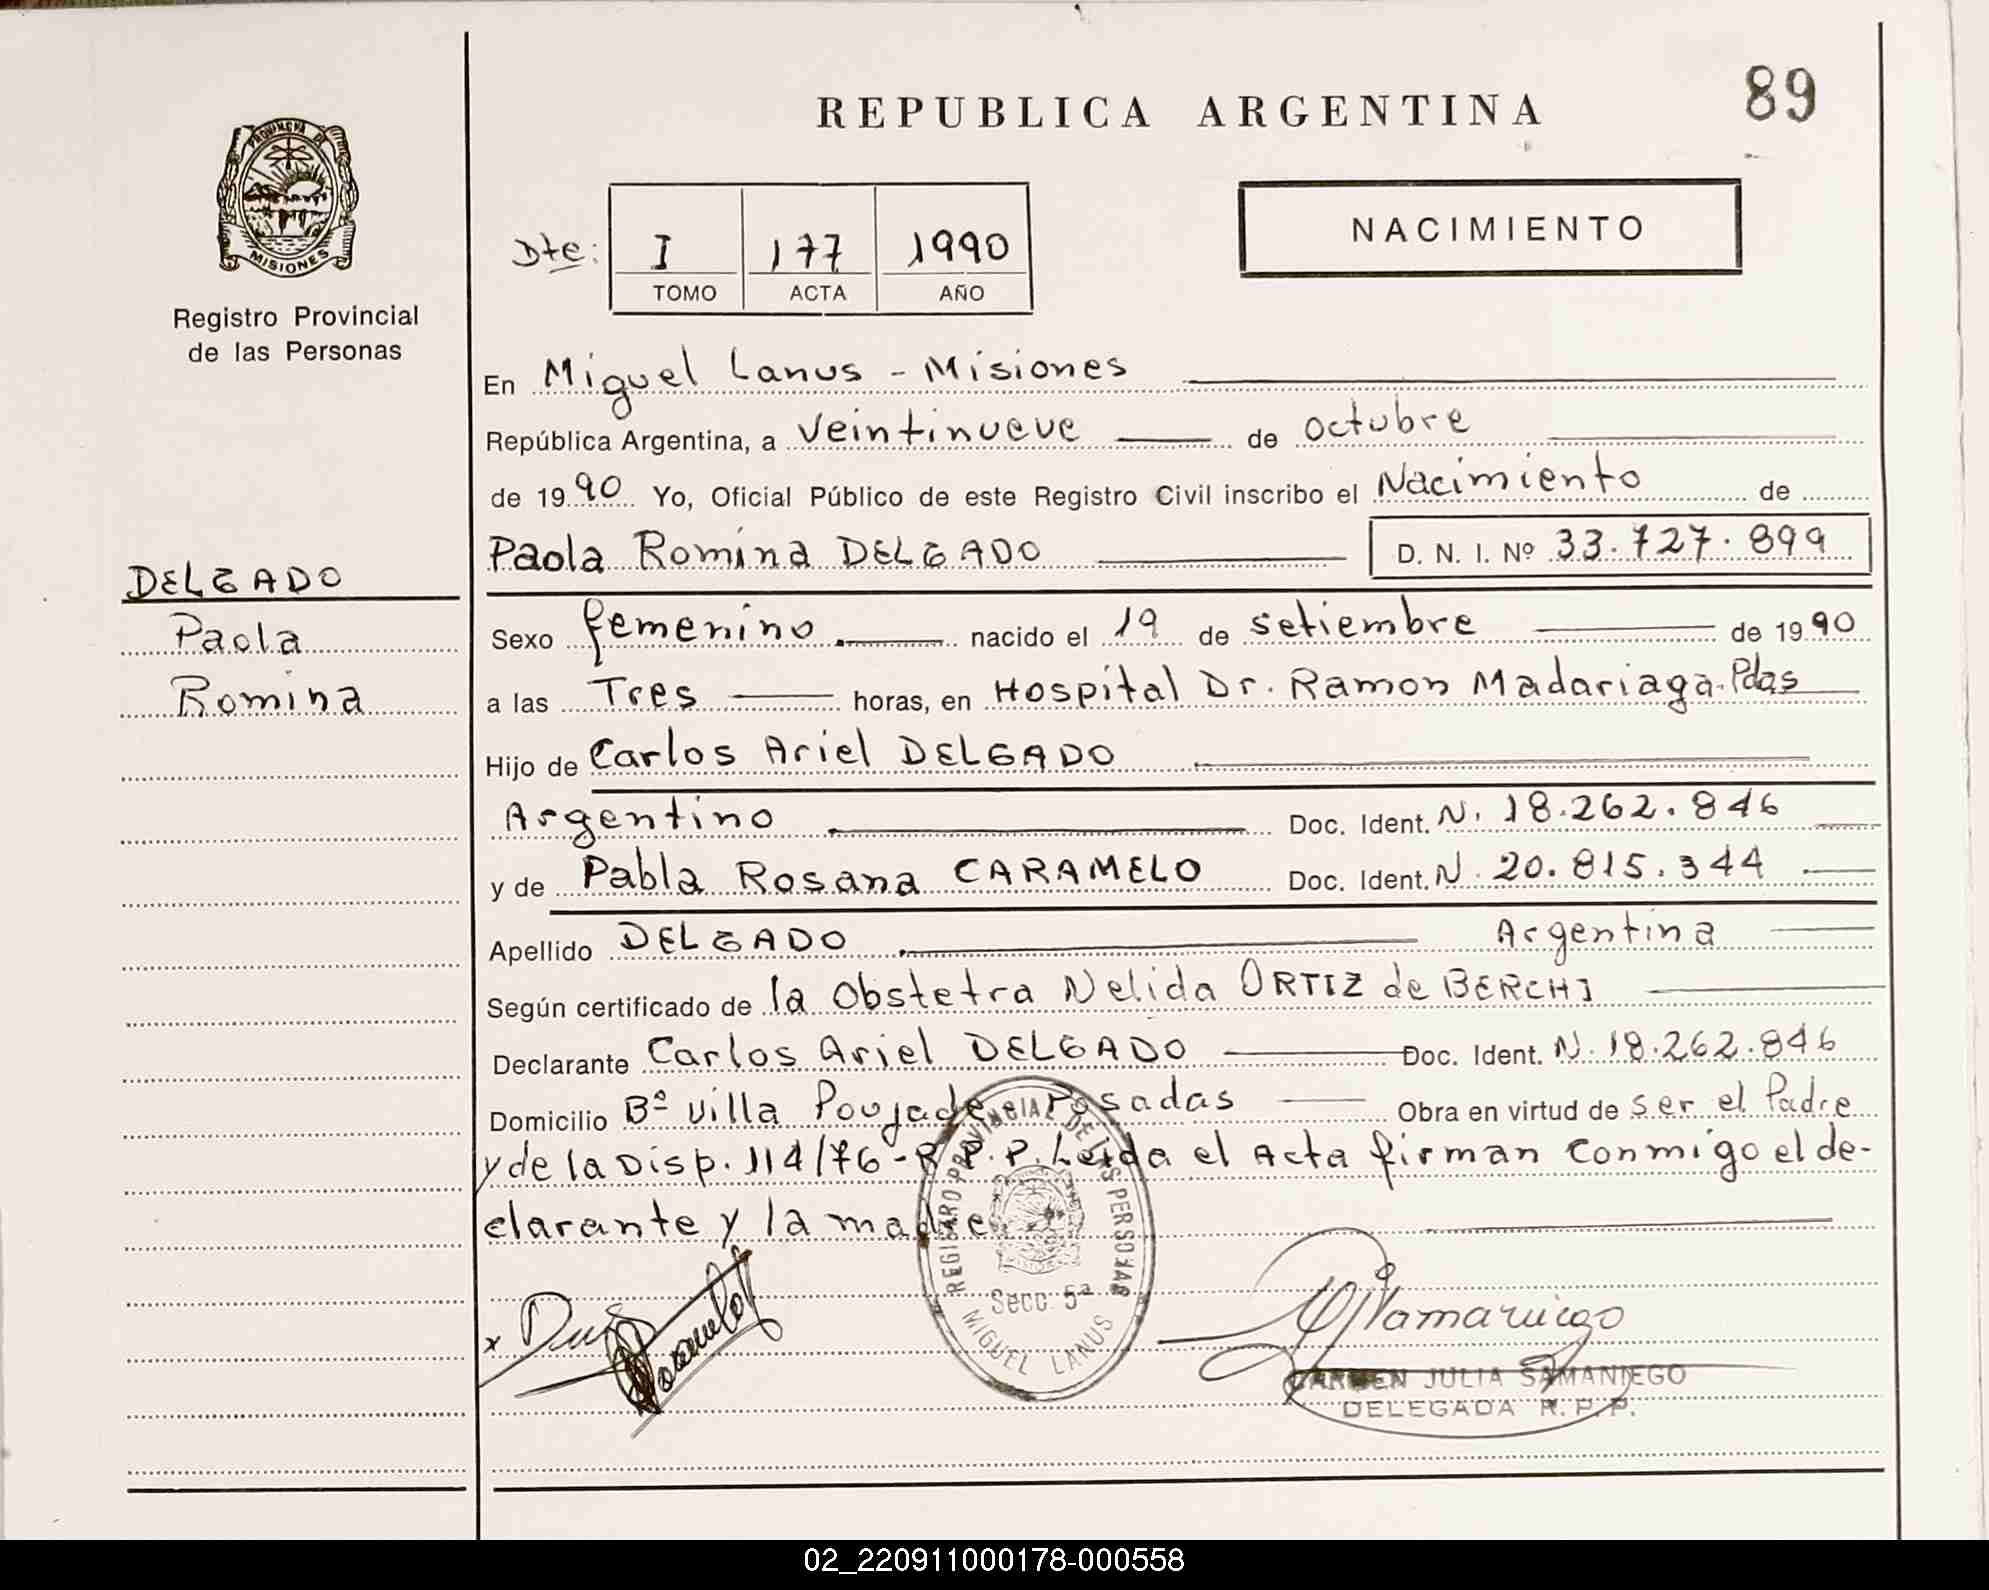 REPUBLICA ARGENTINA
89
PROVINCIA DE
MISIONES
Registro Provincial
de las Personas
Dte:
I
177
1990
TOMO
ACTA
AÑO
NACIMIENTO
En Miguel Lanus - Misiones
República Argentina, a veintinueve de octubre
de 1990 Yo, Oficial Público de este Registro Civil inscribo el Nacimiento de
Paola Romina DELGADO D. N. I. Nº 33.727.899
DELGADO
Paola
Romina
Sexo femenino nacido el 19 de setiembre de 1990
a las Tres horas, en Hospital Dr. Ramon Madariaga-Pdas
Hijo de Carlos Ariel DELGADO
Argentino Doc. Ident. N. 18.262.846
y de Pabla Rosana CARAMELO Doc. Ident. N. 20.815.344
Apellido DELGADO Argentina
Según certificado de la Obstetra Nelida ORTIZ de BERCHI
Declarante Carlos Ariel DELGADO Doc. Ident. N. 18.262.846
Domicilio Bº Villa Poujade Posadas Obra en virtud de ser el Padre
y de la Disp. 114/76-R.P.P. Leida el Acta firman conmigo el de-
clarante y la madre
REGISTRO PROVINCIAL DE LAS PERSONAS
Secc. 5ª
MIGUEL LANUS
CARMEN JULIA SAMANIEGO
DELEGADA R. P. P.
02_220911000178-000558